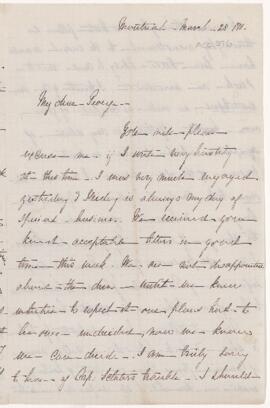 Montreal March 28
My dear George
You will please
excuse me if I write very hastily
at this time. I was very much engaged
yesterday & Friday is always my day of
special business. We received your
kind acceptable letters in good
time this week. We are not disappointed
about the
intention to respect at our plans had to
be undecided now we know
we can decide. I am truly sorry
to hear of Cap. trouble. I should